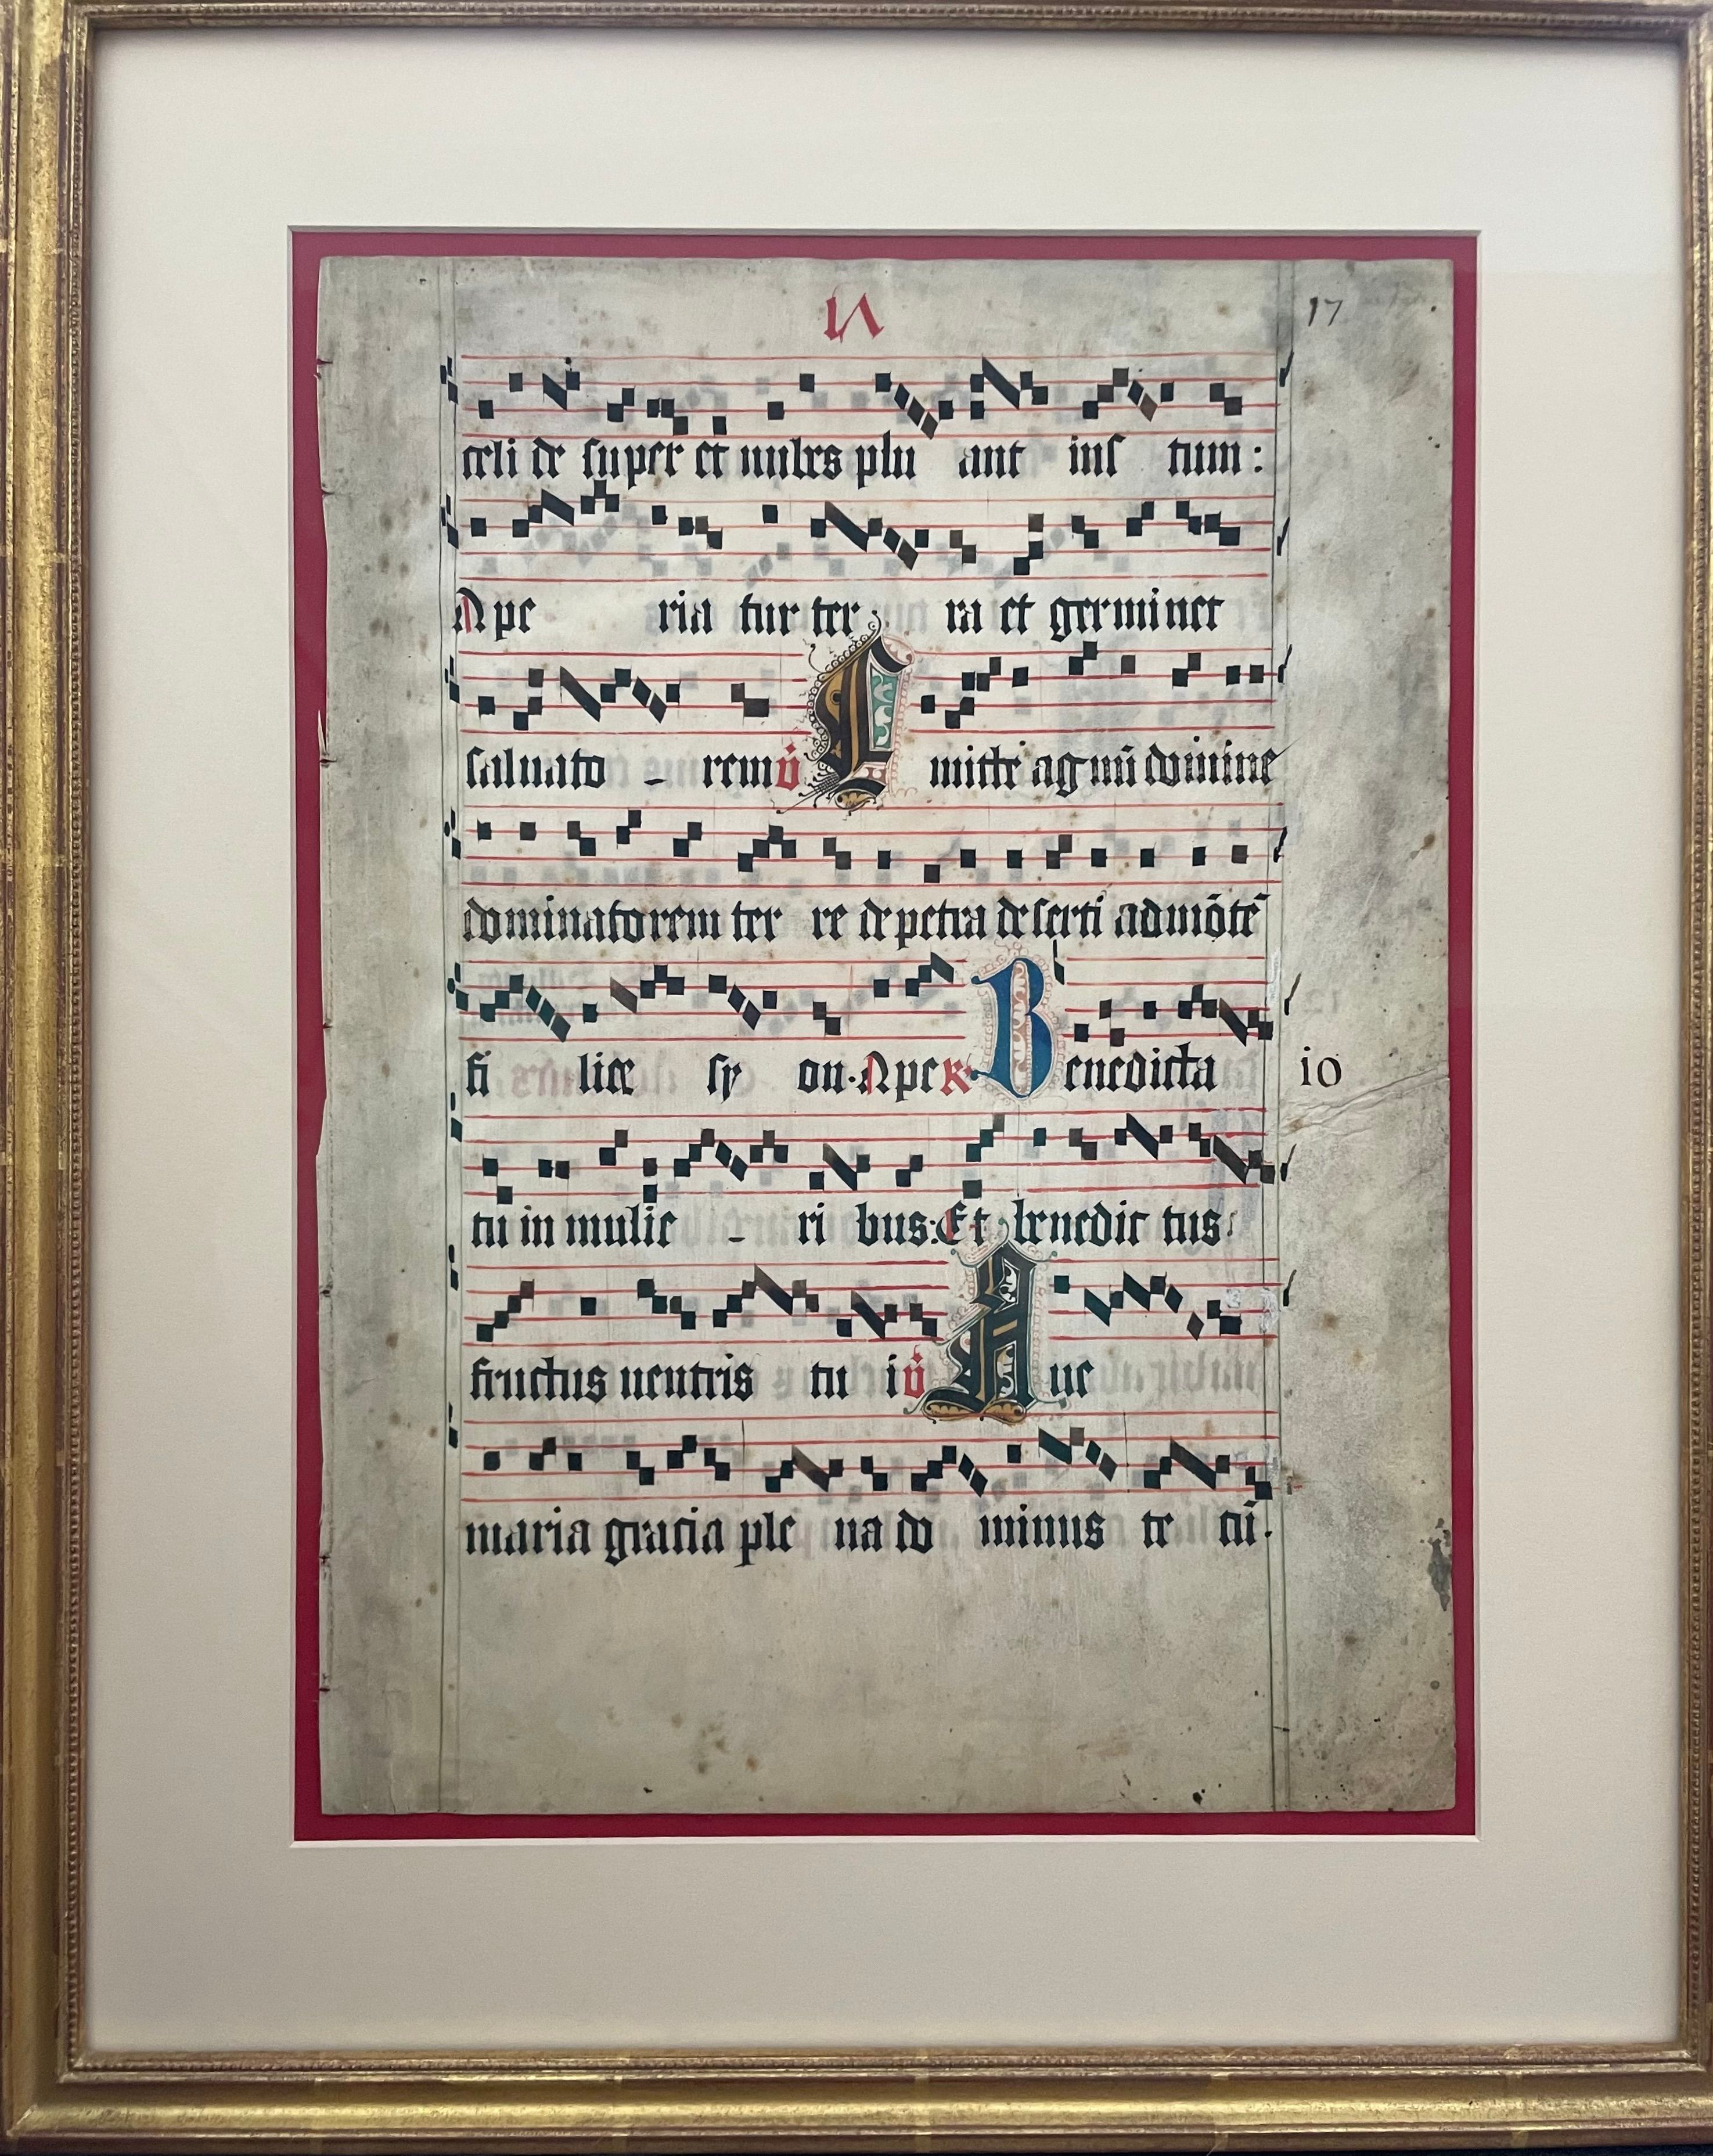 17
celi de super et nubes plu ant ius tum:
Ape ria tur ter ra et germinet
saluato - rem v̇ E mitte agnū domine
dominatorem ter re de petra deserti ad mōtē
fi lie sy on. Ape R. Benedicta io
tu in mulie - ri bus: Et benedic tus
fructus uentris tu i v̇ Aue
maria gratia ple na do minus te cū.